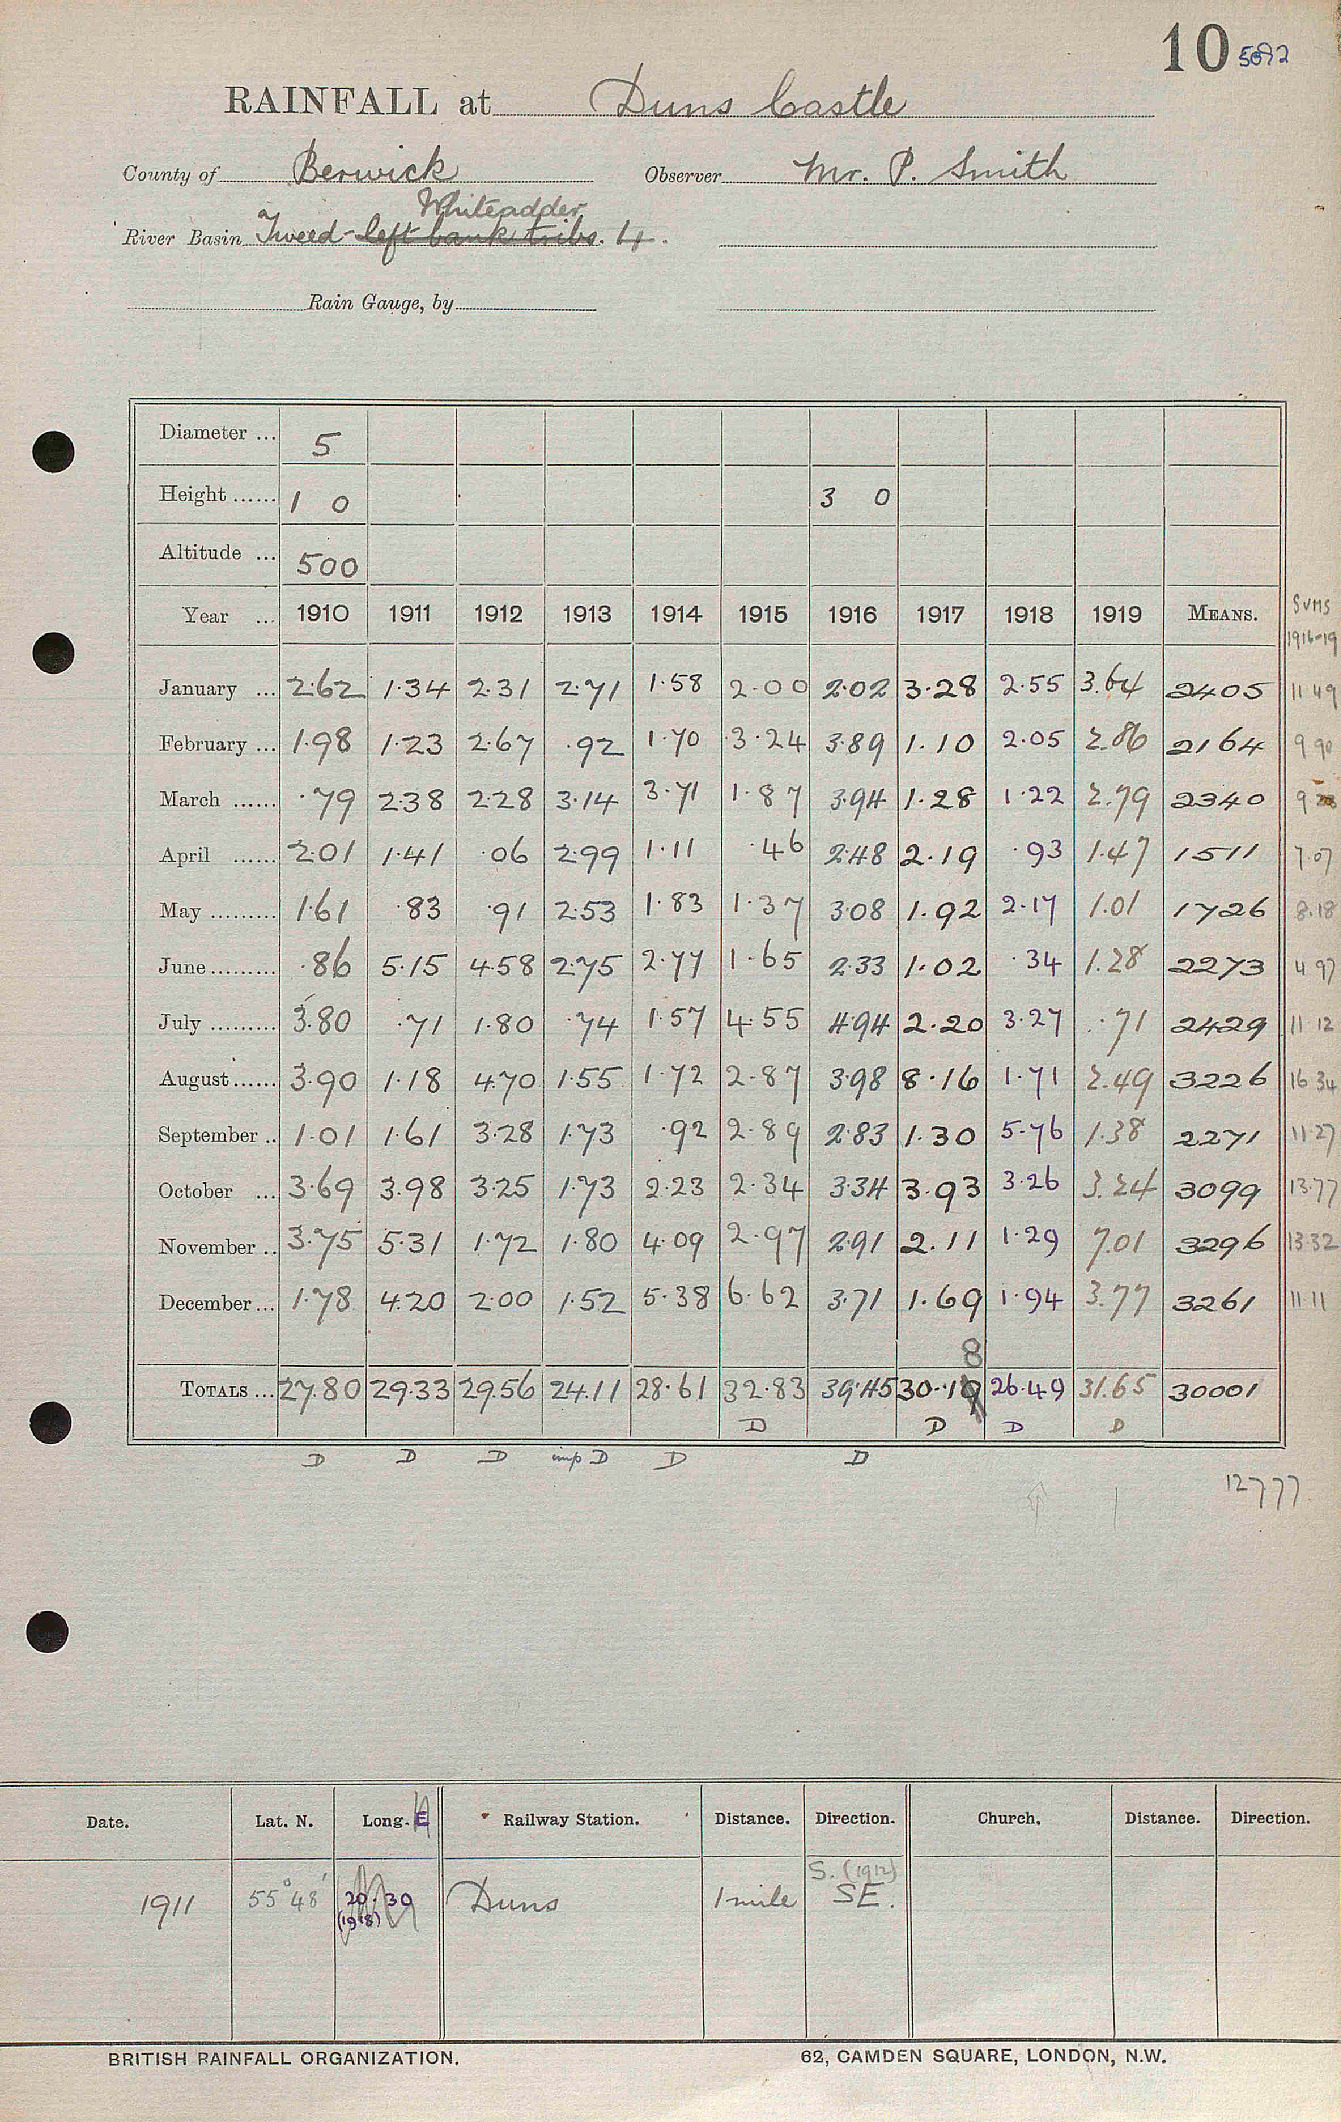 10 5092
RAINFALL at Duns Castle
County of Berwick Observer Mr. P. Smith
Whiteadder
River Basin Tweed - left bank tribs. 4.
Rain Gauge, by
Diameter ... 5
Height ...... 1 0 3 0
Altitude ... 500
Year ... 1910 1911 1912 1913 1914 1915 1916 1917 1918 1919 MEANS. SUMS 1916-19
January ... 2.62 1.34 2.31 2.71 1.58 2.00 2.02 3.28 2.55 3.64 2405 11.49
February ... 1.98 1.23 2.67 .92 1.70 3.24 3.89 1.10 2.05 2.86 2164 9.90
March ...... .79 2.38 2.28 3.14 3.71 1.87 3.94 1.28 1.22 2.79 2340 9
April ...... 2.01 1.41 .06 2.99 1.11 .46 2.48 2.19 .93 1.47 1511 7.07
May ......... 1.61 .83 .91 2.53 1.83 1.37 3.08 1.92 2.17 1.01 1726 8.18
June ......... .86 5.15 4.58 2.75 2.77 1.65 2.33 1.02 .34 1.28 2273 4 97
July ......... 3.80 .71 1.80 .74 1.57 4.55 4.94 2.20 3.27 .71 2429 11 12
August ...... 3.90 1.18 4.70 1.55 1.72 2.87 3.98 8.16 1.71 2.49 3226 16 34
September .. 1.01 1.61 3.28 1.73 .92 2.89 2.83 1.30 5.76 1.38 2271 11.27
October ... 3.69 3.98 3.25 1.73 2.23 2.34 3.34 3.93 3.26 3.24 3099 13.77
November .. 3.75 5.31 1.72 1.80 4.09 2.97 2.91 2.11 1.29 7.01 3296 13.32
December ... 1.78 4.20 2.00 1.52 5.38 6.62 3.71 1.69 1.94 3.77 3261 11.11
8
TOTALS ... 27.80 29.33 29.56 24.11 28.61 32.83 39.45 30.19 26.49 31.65 30001
D D D D
D D D imp D D D
12777
Date. Lat. N. Long. E Railway Station. Distance. Direction. Church. Distance. Direction.
S. (1912)
1911 55° 48' 20.39 Duns 1 mile SE.
(1918)
BRITISH RAINFALL ORGANIZATION. 62, CAMDEN SQUARE, LONDON, N.W.